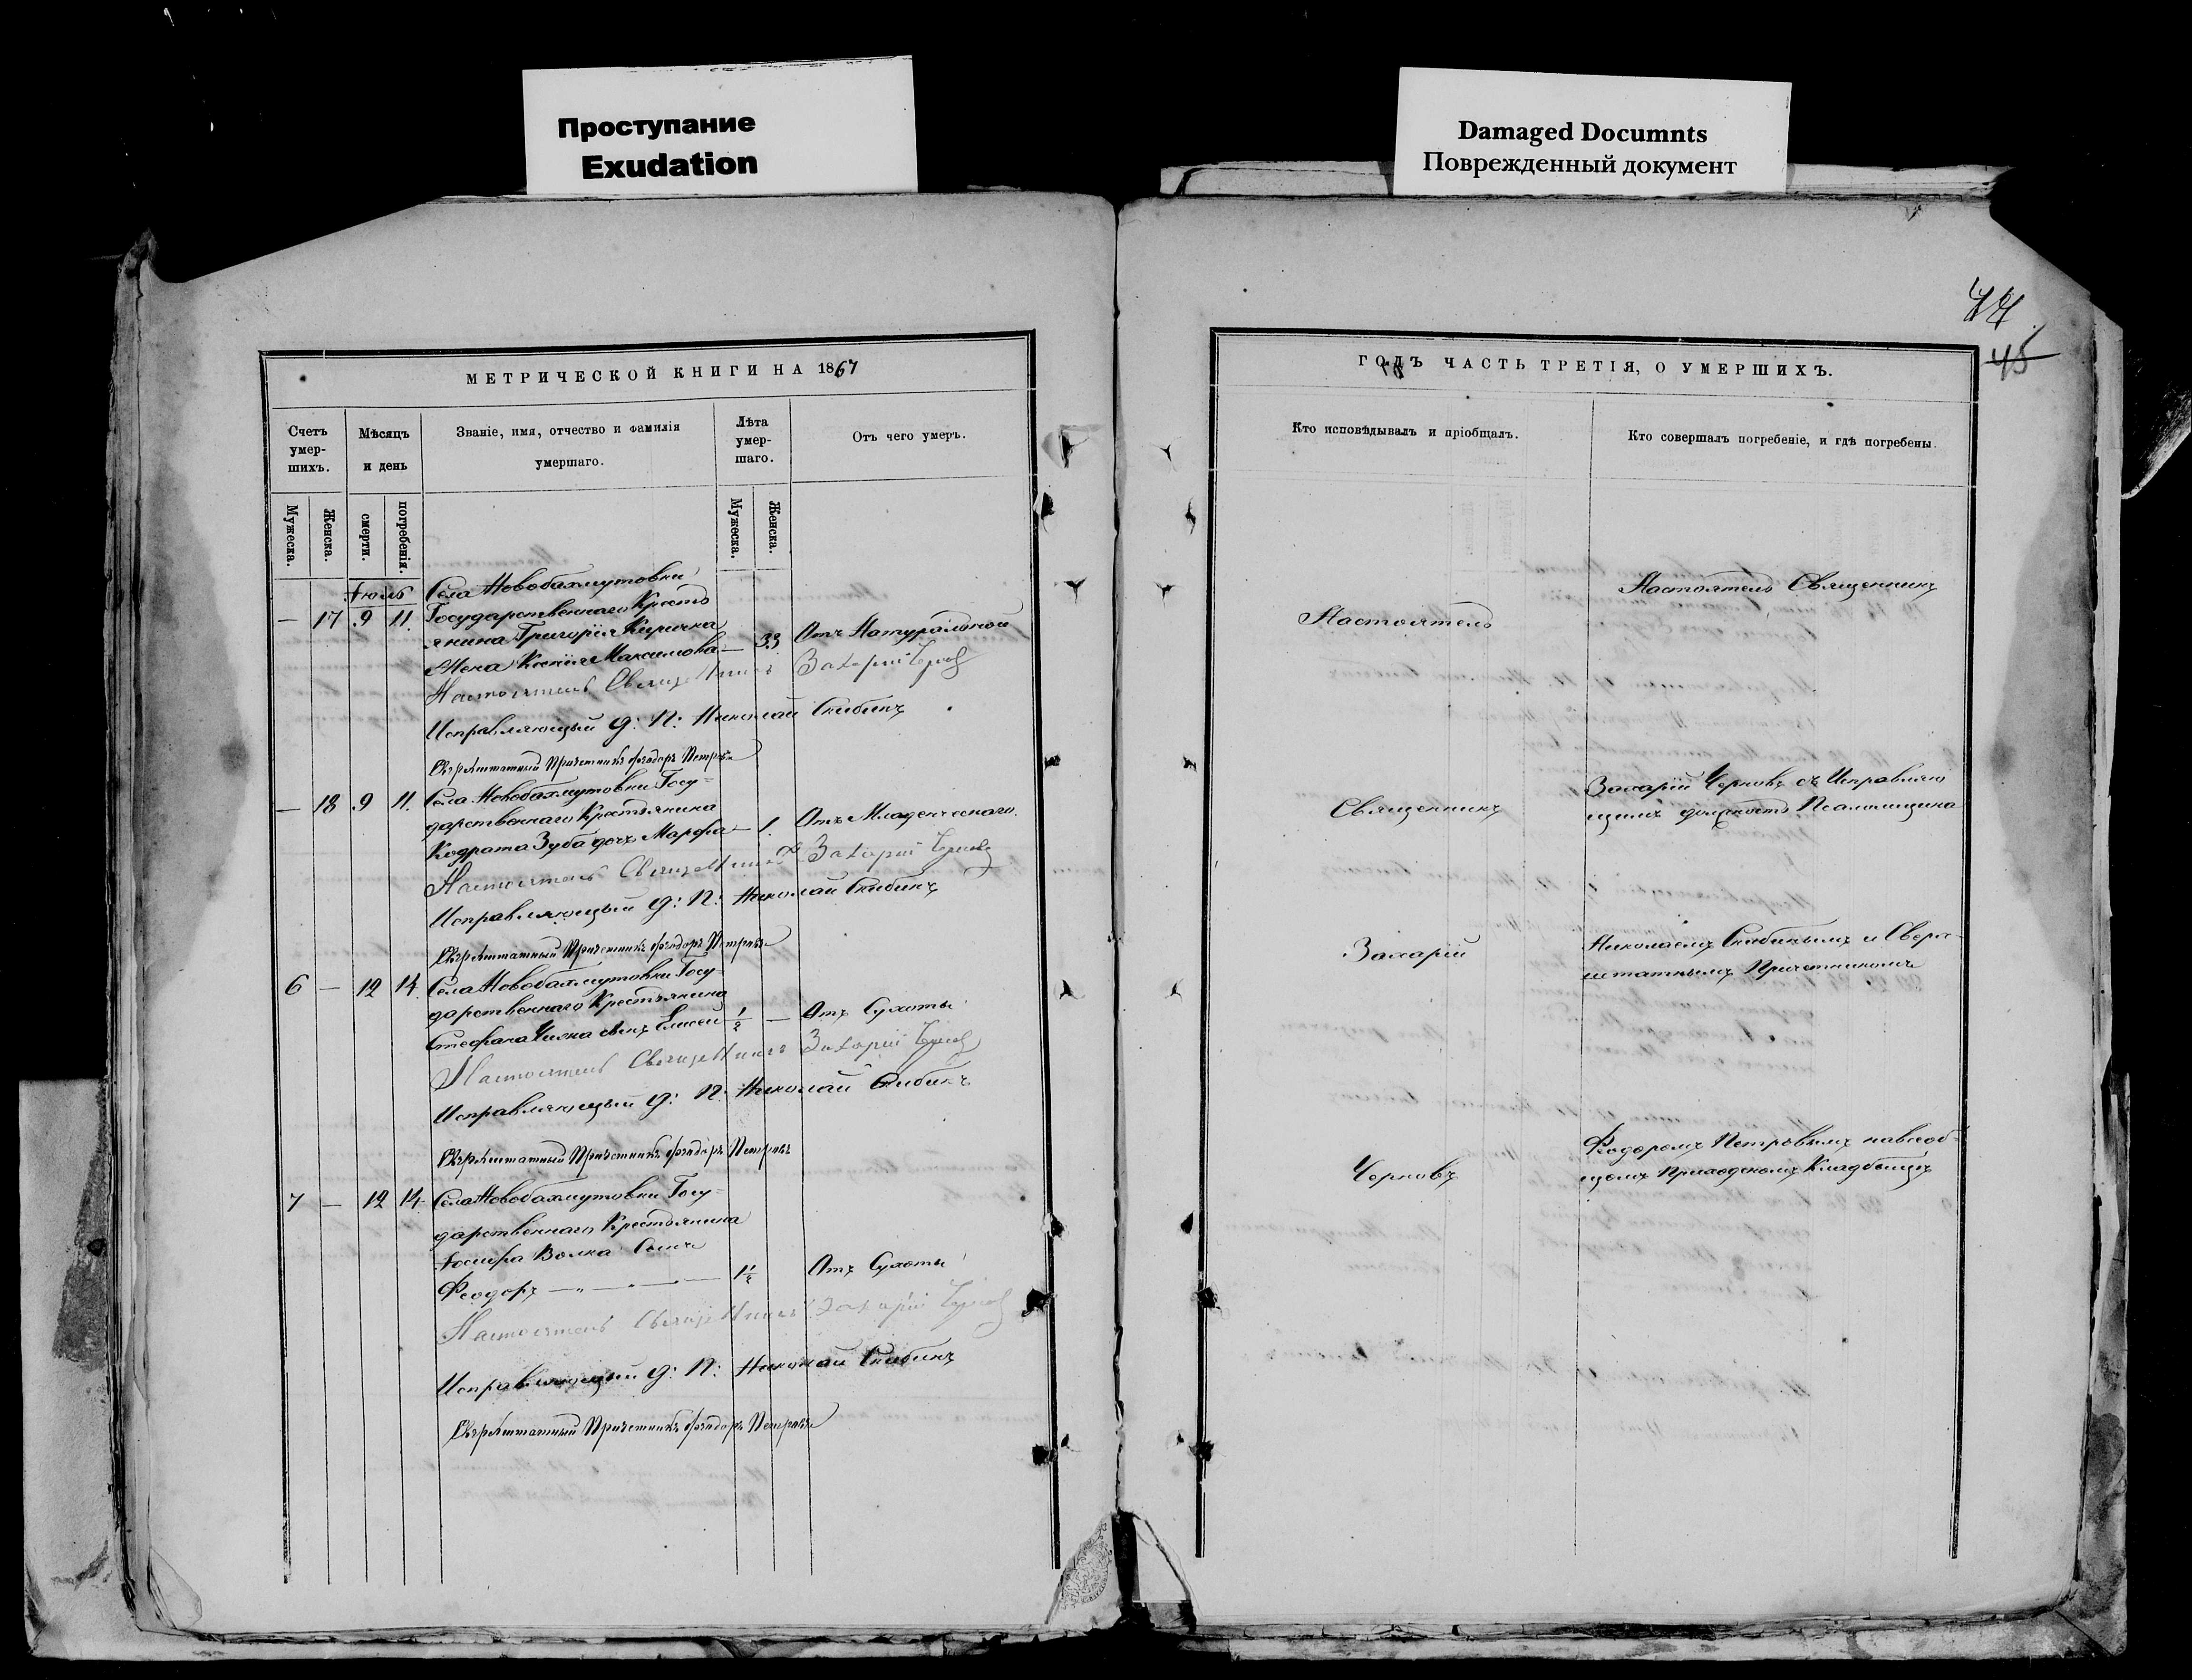 Проступание
Exudation
Damaged Documnts
Поврежденный документ
44
45
МЕТРИЧЕСКОЙ КНИГИ НА 1867
Счетъ умер-шихъ.
Мѣсяцъ и день
Званіе, имя, отчество и фамилія умершаго.
Лѣта умер-шаго.
Отъ чего умеръ.
Мужеска.
Женска.
смерти.
погребенія.
Мужеска.
Женска.
Іюль
Села Новобахмутовки
— 17 9 11. Государственнаго Кресть
янина Григорія Киричка
Жена Ксенія Максимова — 33 Отъ Натуральной
Настоятель Священникъ Захарій Черновъ
Исправляющій д: П: Николай Скибинъ
Сверхштатный Причетникъ Ѳеодоръ Петровъ
— 18 9 11. Села Новобахмутовки Госу-
дарственнаго Крестьянина
Кодрата Зуба дочь Марфа — 1. Отъ Младенческаго.
Настоятель Священникъ Захарій Черновъ
Исправляющій д: П: Николай Скибинъ
Сверхштатный Причетникъ Ѳеодоръ Петровъ
6 — 12 14. Села Новобахмутовки Госу-
дарственнаго Крестьянина
Стефана сынъ Елисей 1/2 — Отъ Сухоты
Настоятель Священникъ Захарій Черновъ
Исправляющій д: П: Николай Скибинъ
Сверхштатный Причетникъ Ѳеодоръ Петровъ
7 — 12 14. Села Новобахмутовки Госу-
дарственнаго Крестьянина
Іосифа Волка Сынъ
Ѳеодоръ — „ — „ — 1 1/2 Отъ Сухоты
Настоятель Священникъ Захарій Черновъ
Исправляющій д: П: Николай Скибинъ
Сверхштатный Причетникъ Ѳеодоръ Петровъ
ГОДЪ ЧАСТЬ ТРЕТІЯ, О УМЕРШИХЪ.
Кто исповѣдывалъ и пріобщалъ.
Кто совершалъ погребеніе, и гдѣ погребены.
Настоятель
Священникъ
Захарій
Черновъ
Настоятель Священникъ
Захарій Черновъ съ Исправляю
щимъ должность Псаломщика
Николаемъ Скибинымъ и Сверх-
штатнымъ Причетникомъ
Ѳеодоромъ Петровымъ навсеоб-
щемъ Приходскомъ Кладбищѣ